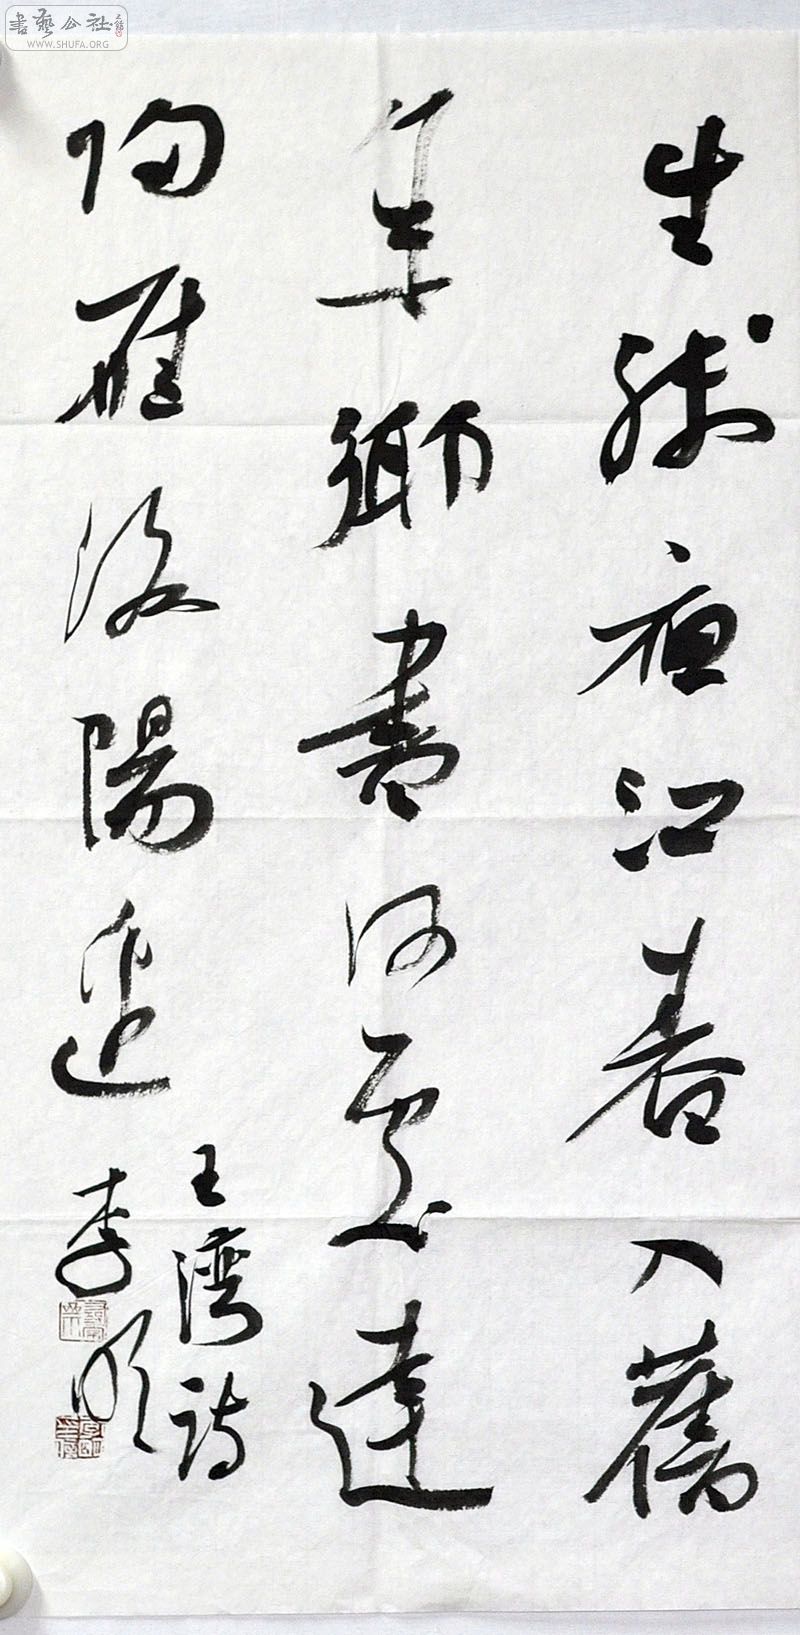 書藝公社
WWW.SHUFA.ORG
生殘夜江春入舊
年鄉書何處達
歸雁洛陽邊
王灣詩
李